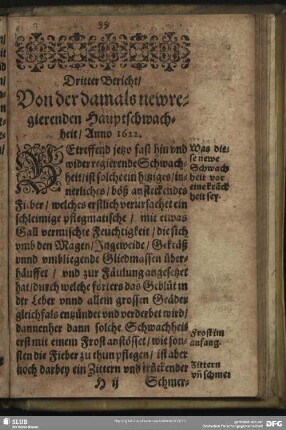 59
Dritter Bericht/
Von der damals newre-
gierenden Hauptschwach-
heit/ Anno 1622.
BEtreffend jetzo fast hin vnd
wider regierende Schwach-
heit/ ist solche ein hitziges/ in-
nerliches/ böß ansteckendes
Fieber/ welches erstlich verursachet ein
schleimige pflegmatische/ mit etwas
Gall vermischte Feuchtigkeit/ die sich
vmb den Magen/ Ingeweide/ Gekräß
vnnd vmbliegende Gliedmassen über-
häuffet/ vnd zur Fäulung angesetzet
hat/ durch welche forters das Geblüt in
der Leber vnnd allem grossen Geäder
gleichfals entzündet vnd verderbet wird/
dannenher dann solche Schwachheit
erst mit einem Frost anstösset/ wie son-
sten die Fieber zu thun pflegen/ ist aber
noch darbey ein Zittern vnd
H ij
Schmer-
Was die-
se newe
Schwach
heit vor
eine
heit sey.
Frost im
anfang.
Zittern
vñ schmer
SLUB